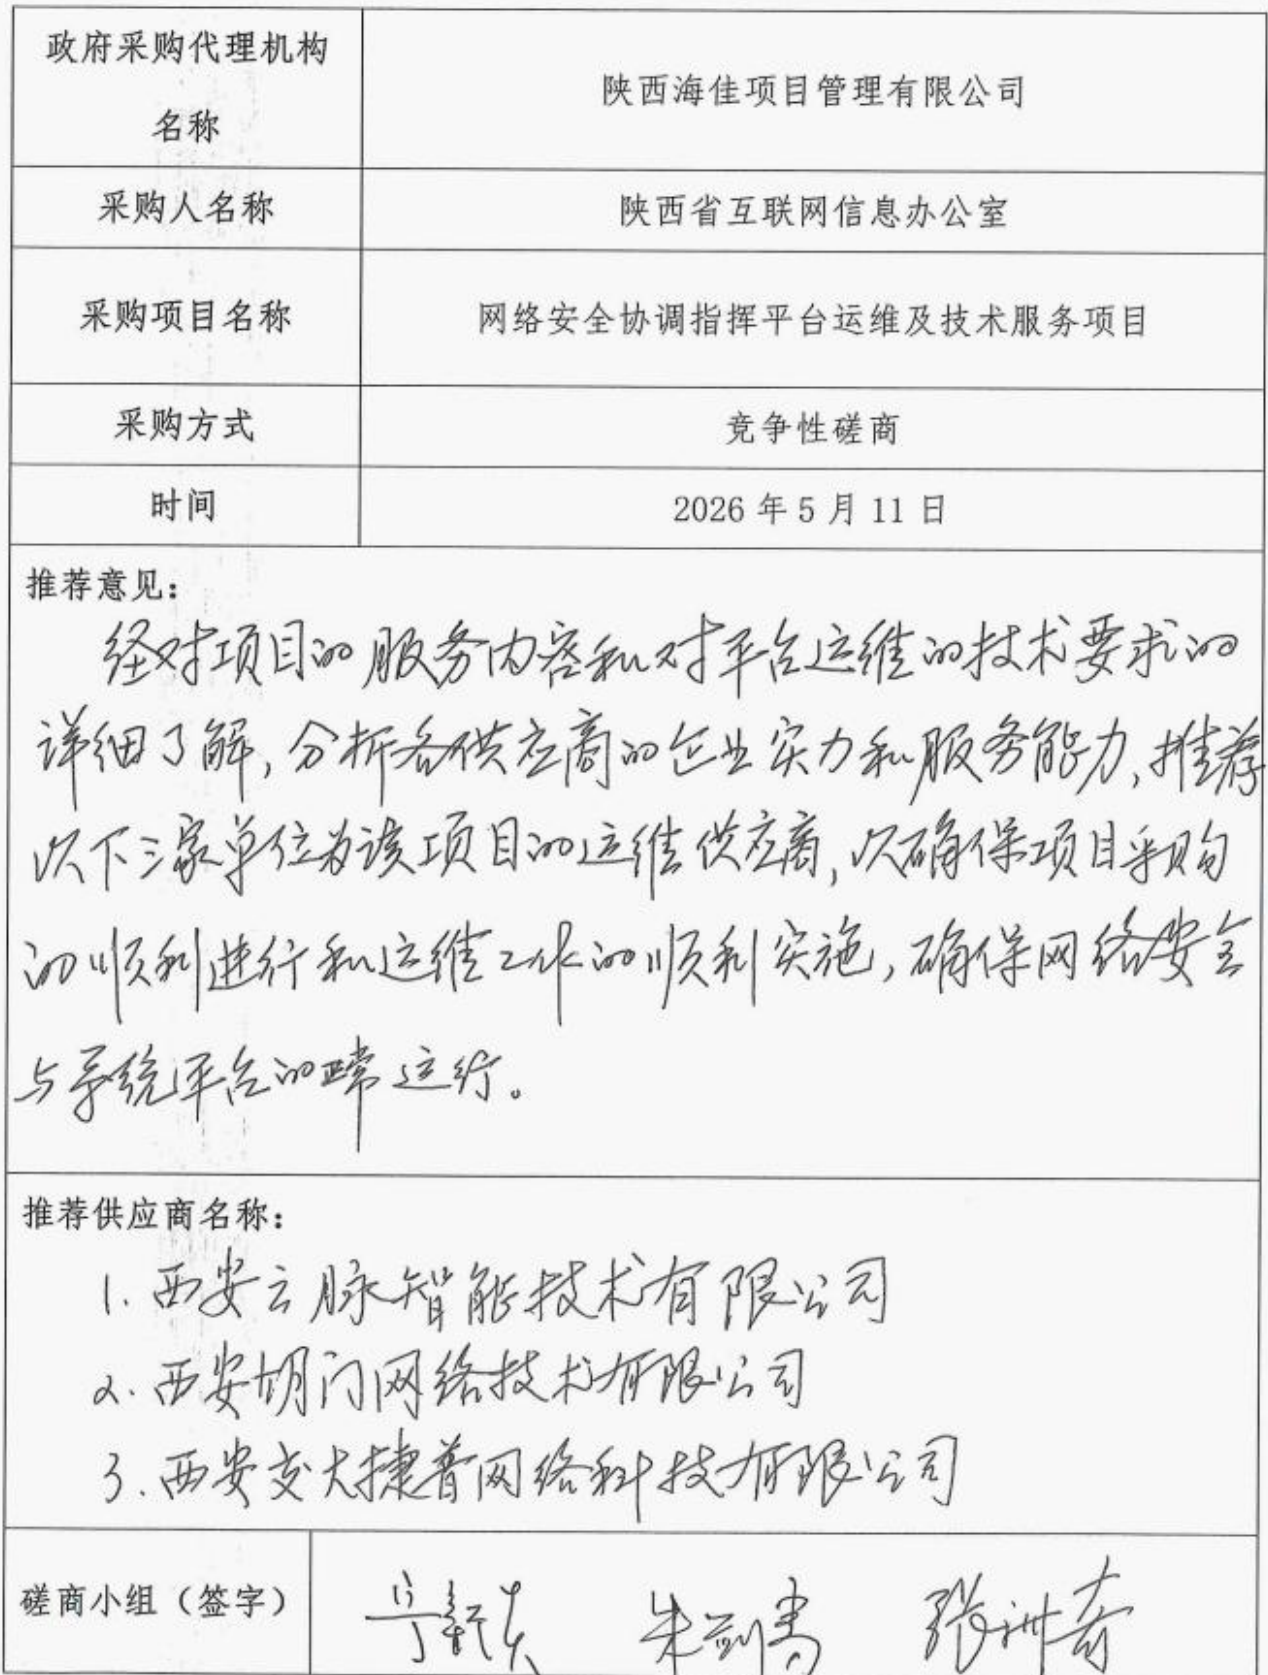 政府采购代理机构
名称
陕西海佳项目管理有限公司
采购人名称
陕西省互联网信息办公室
采购项目名称
网络安全协调指挥平台运维及技术服务项目
采购方式
竞争性磋商
时间
2026 年 5 月 11 日
推荐意见：
经对项目的服务内容和对平台运维的技术要求的
详细了解，分析各供应商的企业实力和服务能力，推荐
以下三家单位为该项目的运维供应商，以确保项目采购
的顺利进行和运维工作的顺利实施，确保网络安全
与系统平台的正常运行。
推荐供应商名称：
1. 西安云脉智能技术有限公司
2. 西安胡门网络技术有限公司
3. 西安交大捷普网络科技有限公司
磋商小组（签字）